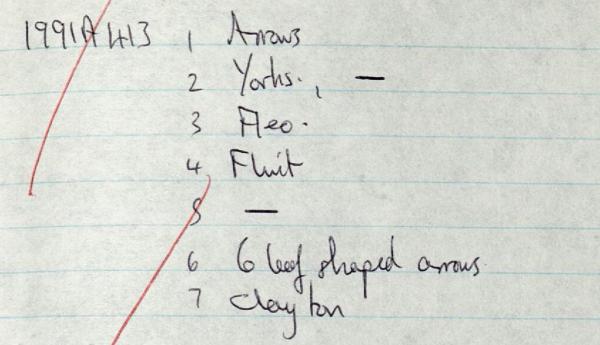 1991A413 1 Arrows
2 Yorks. , —
3 Aeo.
4 Flint
5 —
6 6 leaf shaped arrows.
7 Clayton